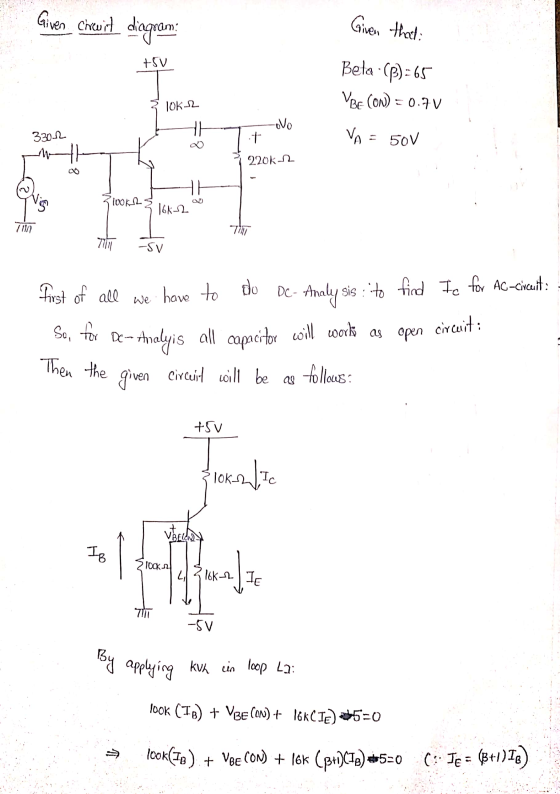 Given Circuit diagram:
Given that:
Beta (β) = 65
VBE (ON) = 0.7V
VA = 50V
+5V
10K-Ω
Vo
∞
+
330Ω
220K-Ω
∞
-
∞
VS
100KΩ
16K-Ω
-5V
First of all we have to Do DC-Analysis: to find Ic for AC-circuit:
So, for DC-Analyis all capacitor will works as open circuit:
Then the given circuit will be as follows:
+5V
10K-Ω
IC
+
VBE(ON)
IB
100KΩ
L1
16K-Ω
IE
-5V
By applying KVL in loop L1:
100K (IB) + VBE (ON) + 16K(IE) -5=0
⇒ 100K(IB) + VBE (ON) + 16K (β+1)(IB) -5=0 (∵ IE = (β+1)IB)